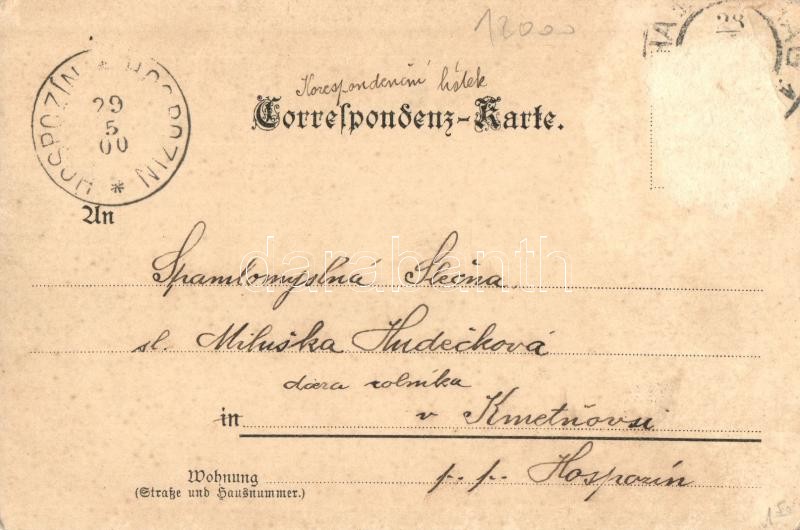 12000
HOSPOZÍN * HOSPOZIN
29
5
00
28
Korespondenční lístek
Correspondenz-Karte.
An
Slečna
sl. Miluška Hudečková
dcera rolníka
in v Kmetňovsi
Wohnung p. p. Hospozín
(Straße und Hausnummer.)
darabanth
150